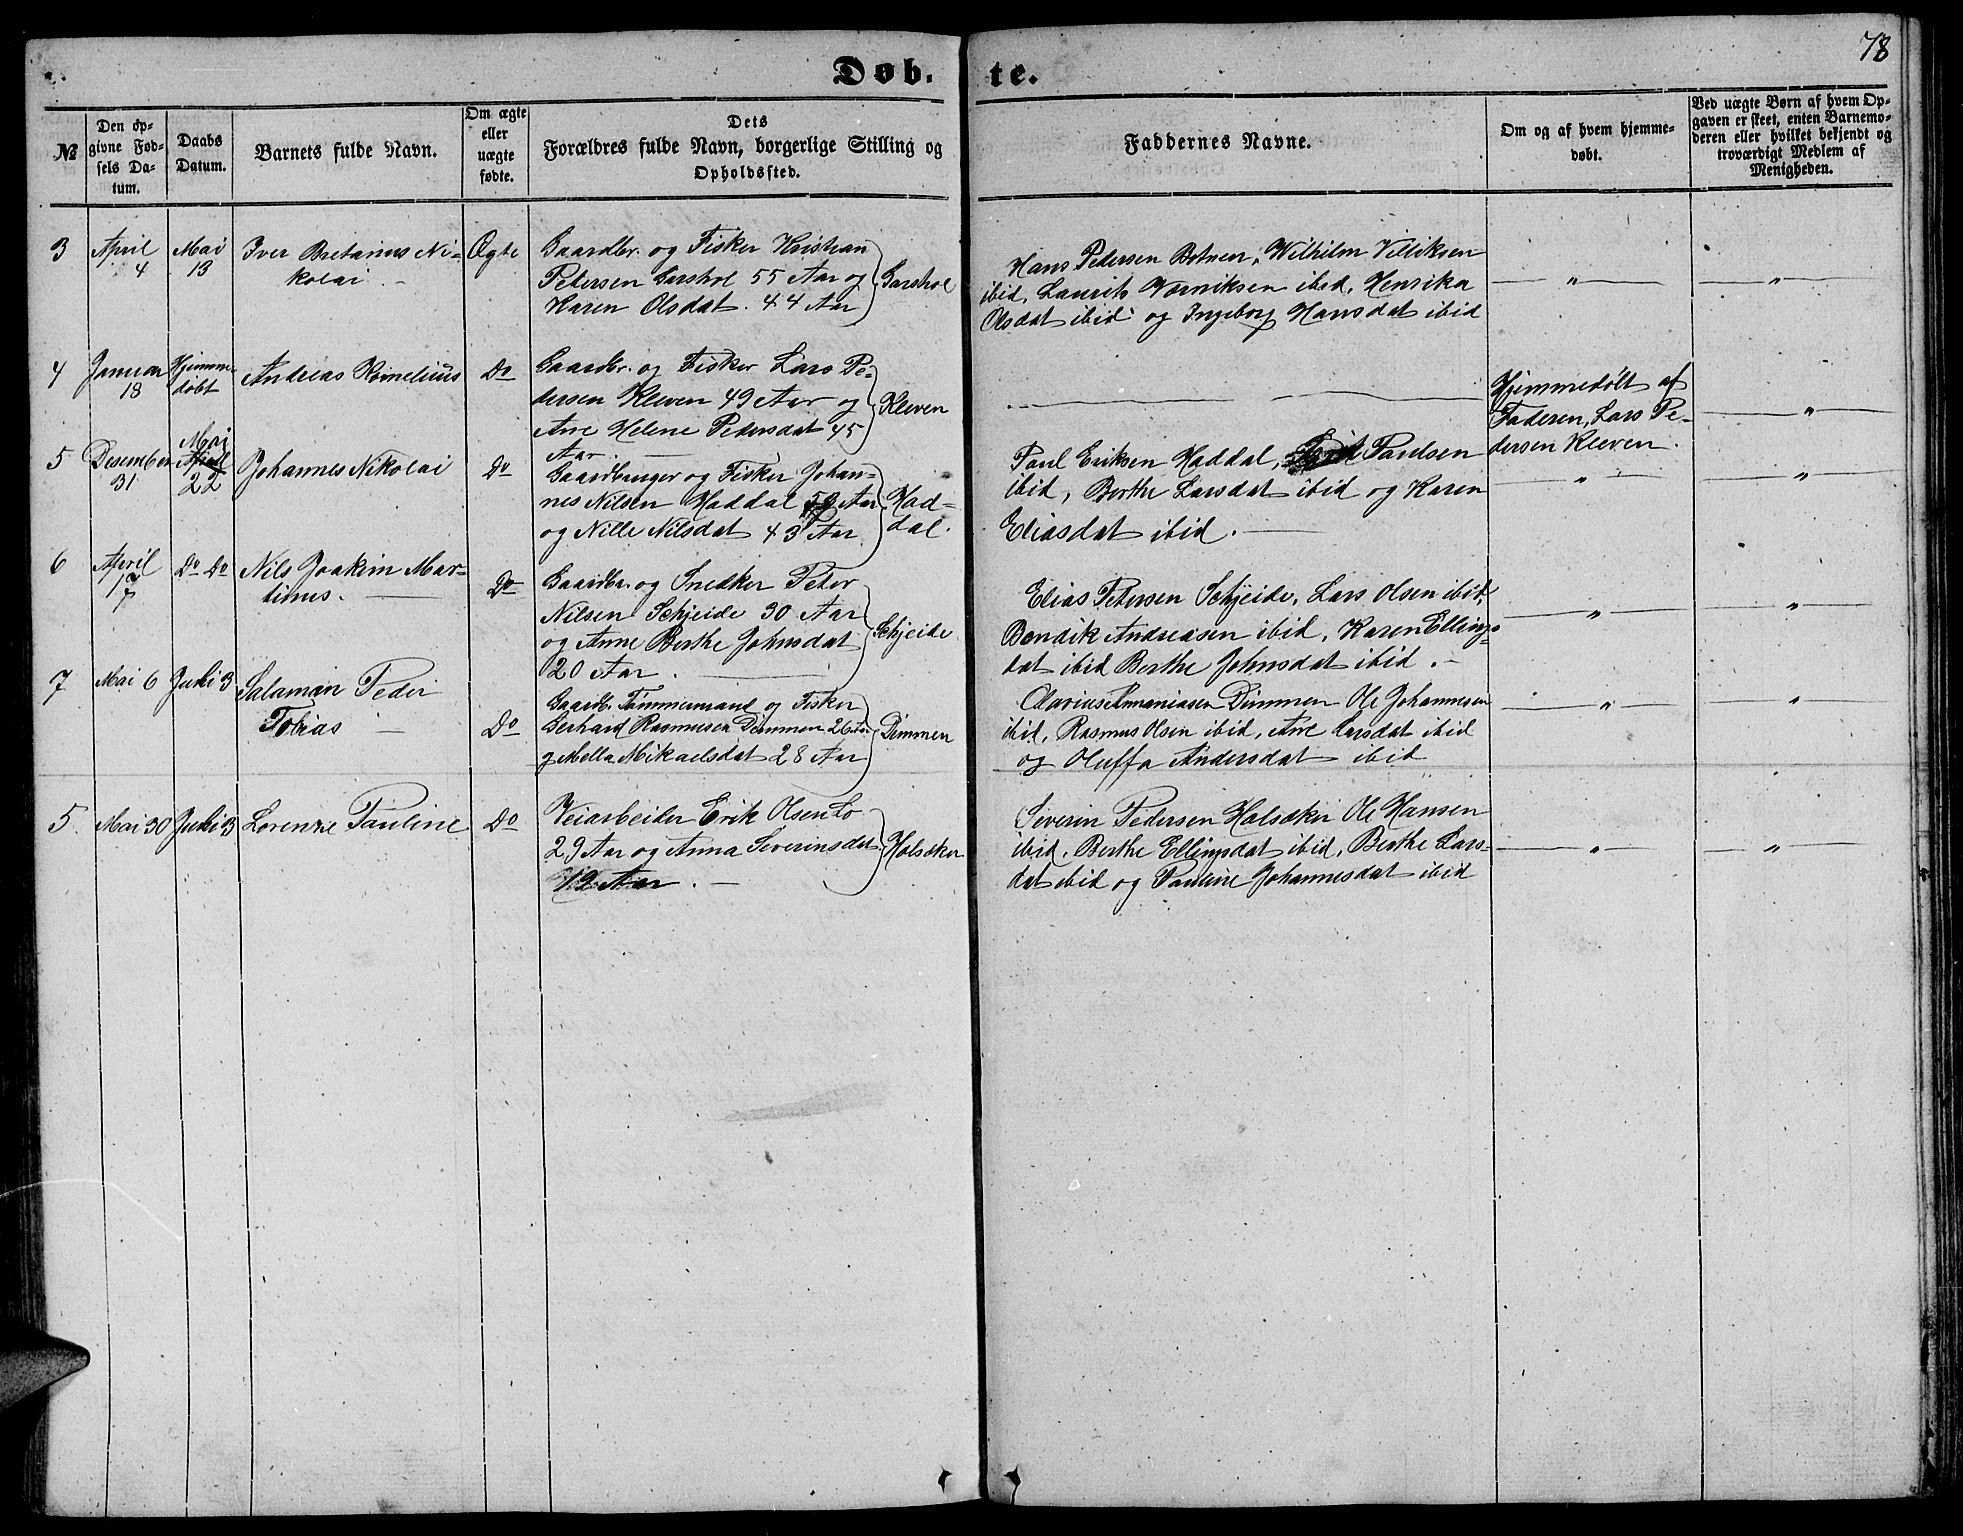 78
Døb. te.
№
Den op-
givne Fød-
sels Da-
tum.
Daabs
Datum.
Barnets fulde Navn.
Om ægte
eller
uægte
fødte.
Dets
Forældres fulde Navn, borgerlige Stilling og
Opholdssted.
Faddernes Navne.
Om og af hvem hjemme-
døbt.
Ved uægte Børn af hvem Op-
gaven er skeet, enten Barnemo-
deren eller hvilket bekjendt og
troværdigt Medlem af
Menigheden.
3
April
4
Mai
13
Iver Bretanus Ni-
kolai.
Ægte
Gaardbr. og Fisker Kristian
Petersen Garshol 55 Aar og
Karen Olsdat. 44 Aar
Garshol
Hans Pedersen Botnen, Wilhelm Villiksen
ibid, Laurits ibid, Henrika
Olsdat ibid og Ingeborg Hansdat ibid
4
Januar
18
Hjemme-
døbt
Andreas Kornelius
Do
Gaardbr. og Fisker Lars Pe-
dersen Kleven 49 Aar og
Ane Helene Pedersdat 45
Aar.
Kleven
Hjemmedøbt af
Faderen, Lars Pe-
dersen Kleven.
5
Desember
31
Mai
April
22
Johannes Nikolai
Do
Gaardbruger og Fisker Johan-
nes Nilsen Haddal Aar
og Nille Nilsdat 43 Aar
Had-
dal.
Paul Eriksen Haddal, Paulsen
ibid, Berthe Larsdat ibid og Karen
Eliasdat ibid.
6
April
17
Do Do
Nils Joakim Mar-
tinus.
Do
Gaardbr. og Snedker Peter
Nilsen Schjeide 30 Aar
og Anne Berthe Johnsdat
20 Aar.
Schjeide
Elias Petersen Schjeide, Lars Olsen ibid,
Bendik Andreasen ibid, Karen Ellings-
dat ibid Berthe Johnsdat ibid.
7
Mai 6
Juli 3
Salaman Peder
Tobias
Do
Gaardb. Tømmermand og Fisker
Gerhard Rasmusen Dimmen 26 Aar
og Mella Mikaelsdat 28 Aar
Dimmen
Clarius Annaniasen Dimmen Ole Johannesen
ibid, Rasmus Olsen ibid, Ane Larsdat ibid
og Oluffa Andersdat ibid
5.
Mai 30
Juli 3
Lorenze Pauline
Do
Veiarbeider Erik Olsen Lo
29 Aar og Anna Severinsdat
19 Aar.
Holsøker
Severin Pedersen Holsøker Ole Hansen
ibid, Berthe Ellingsdat ibid, Berthe Lars-
dat ibid og Pauline Johannesdat ibid